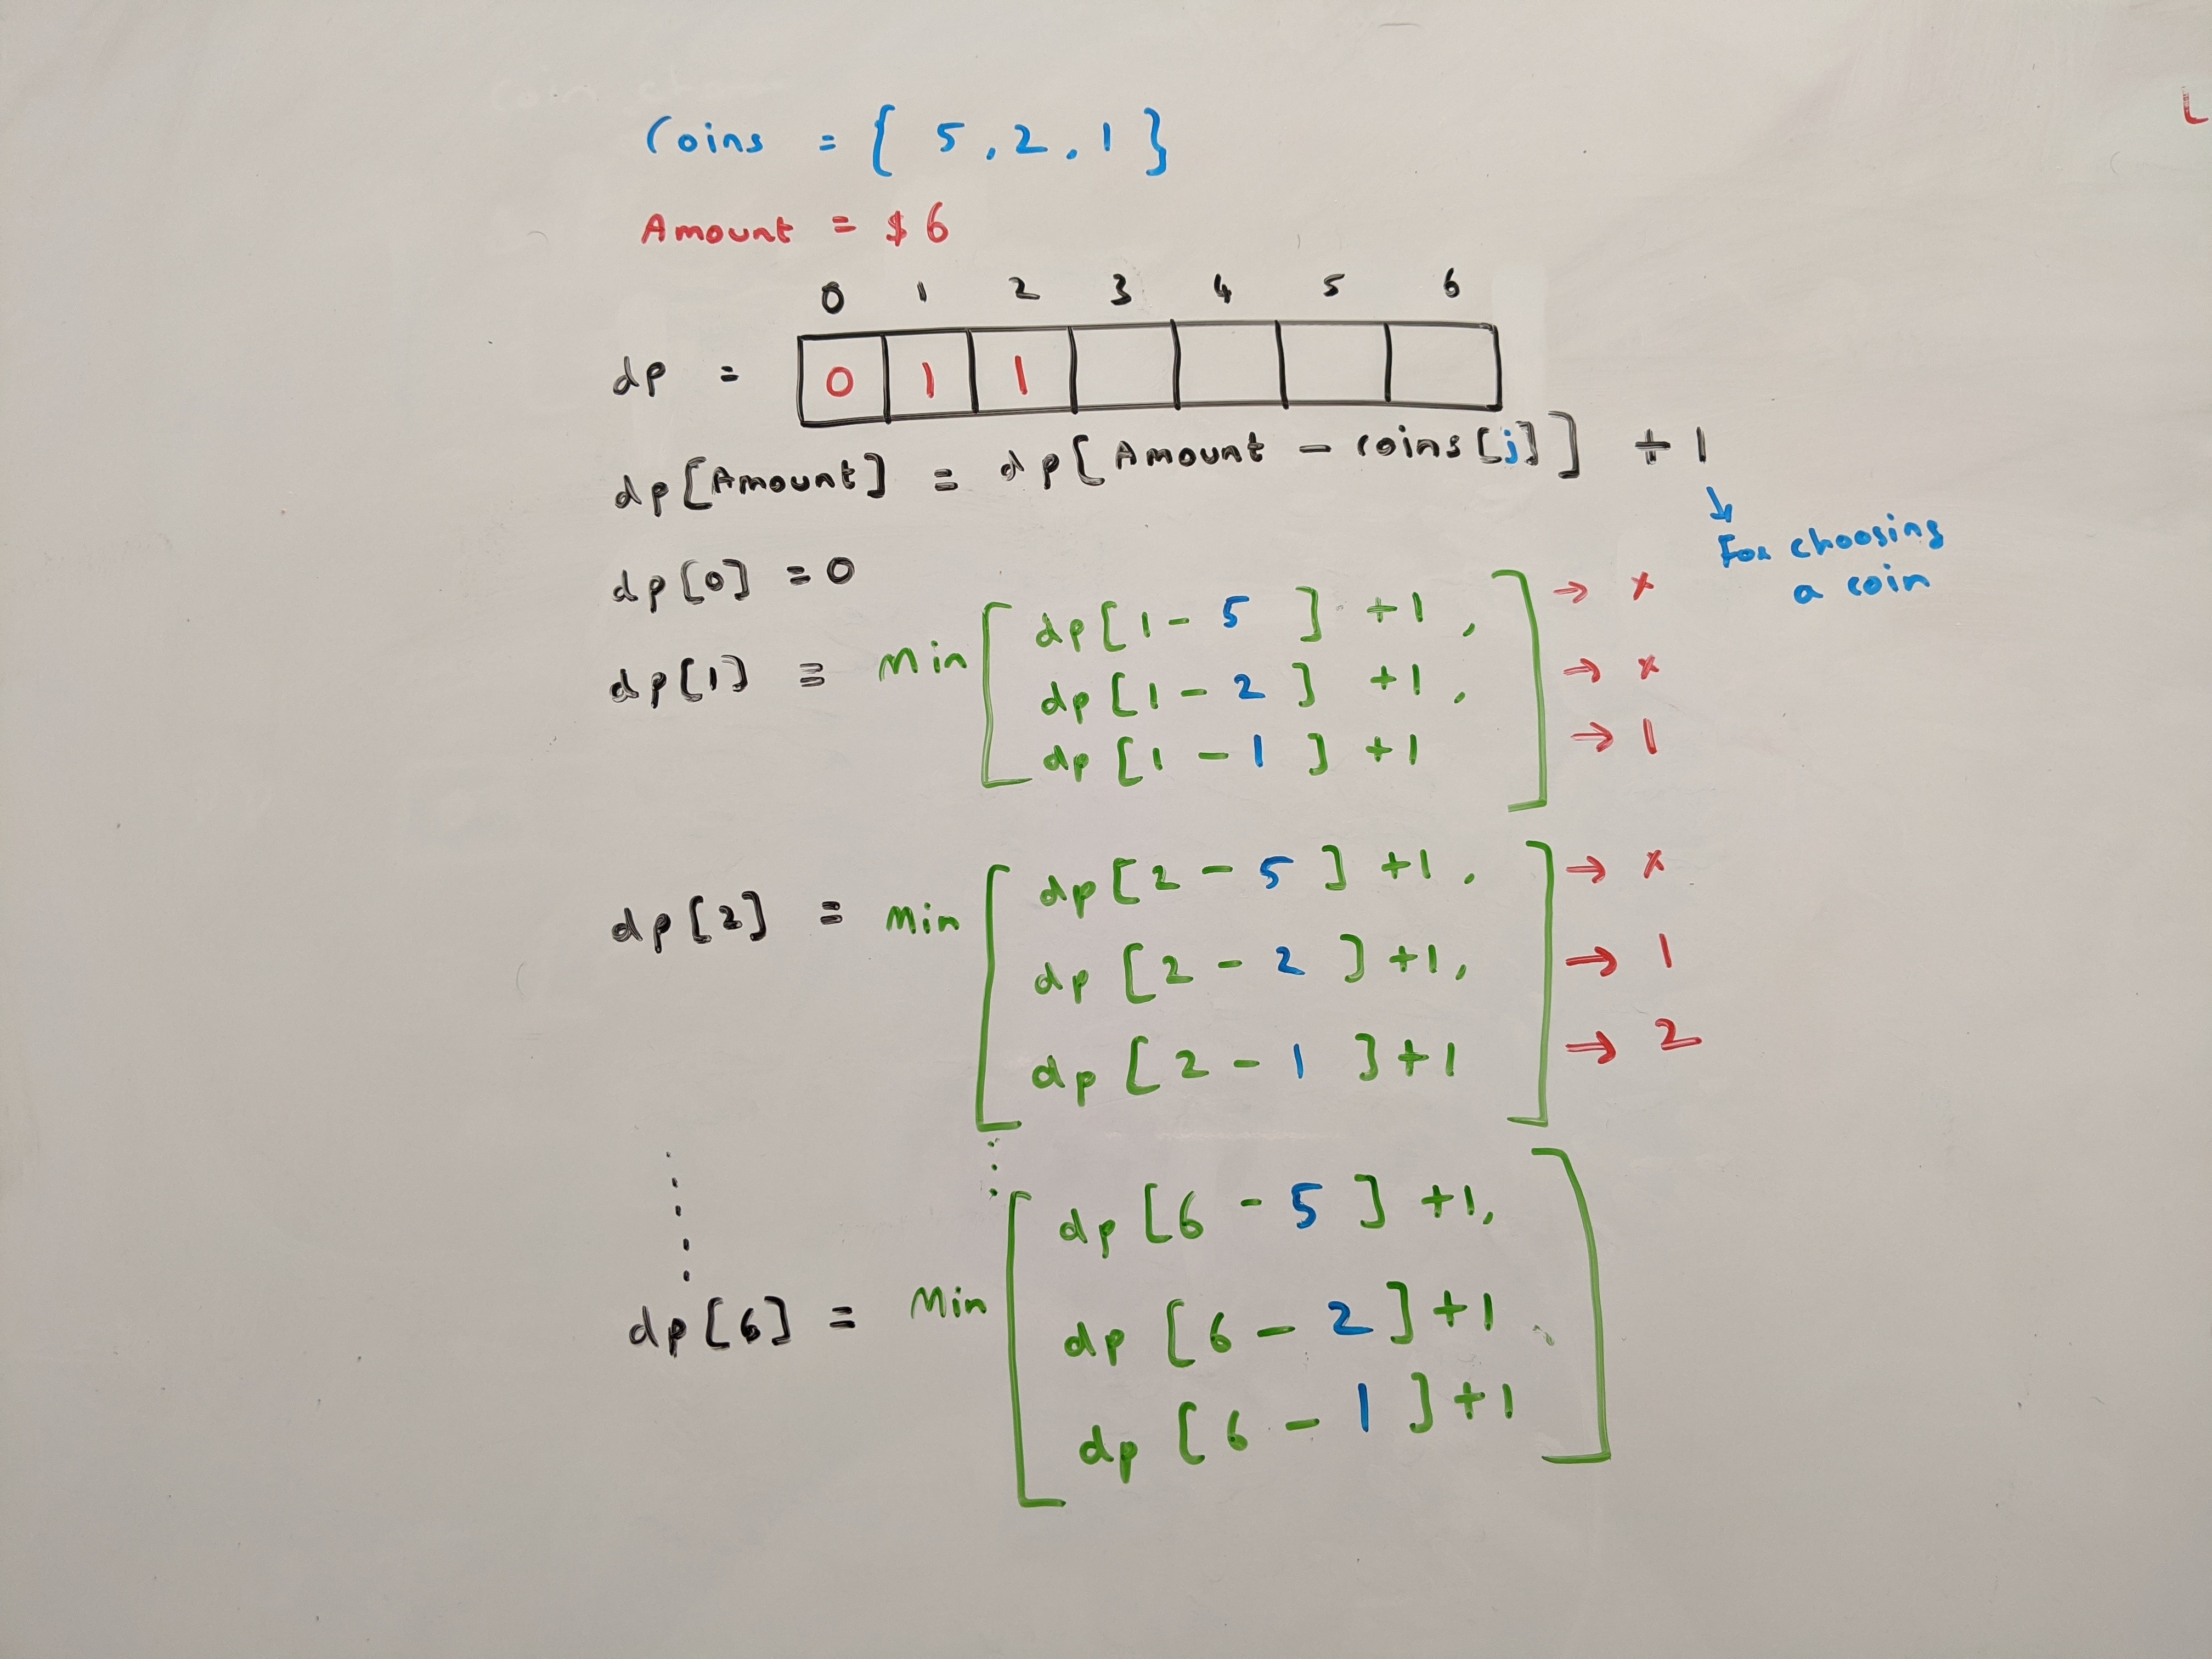 Coins = { 5, 2, 1 }
Amount = $6
0 1 2 3 4 5 6
dp = 0 1 1
dp[Amount] = dp[Amount - coins[j]] + 1
↓
For choosing
a coin
dp[0] = 0
dp[1] = Min [ dp[1 - 5] + 1, ] → x
dp[1 - 2] + 1, → x
dp[1 - 1] + 1 → 1
dp[2] = Min [ dp[2 - 5] + 1, ] → x
dp[2 - 2] + 1, → 1
dp[2 - 1] + 1 → 2
dp[6] = Min [ dp[6 - 5] + 1, ]
dp[6 - 2] + 1
dp[6 - 1] + 1